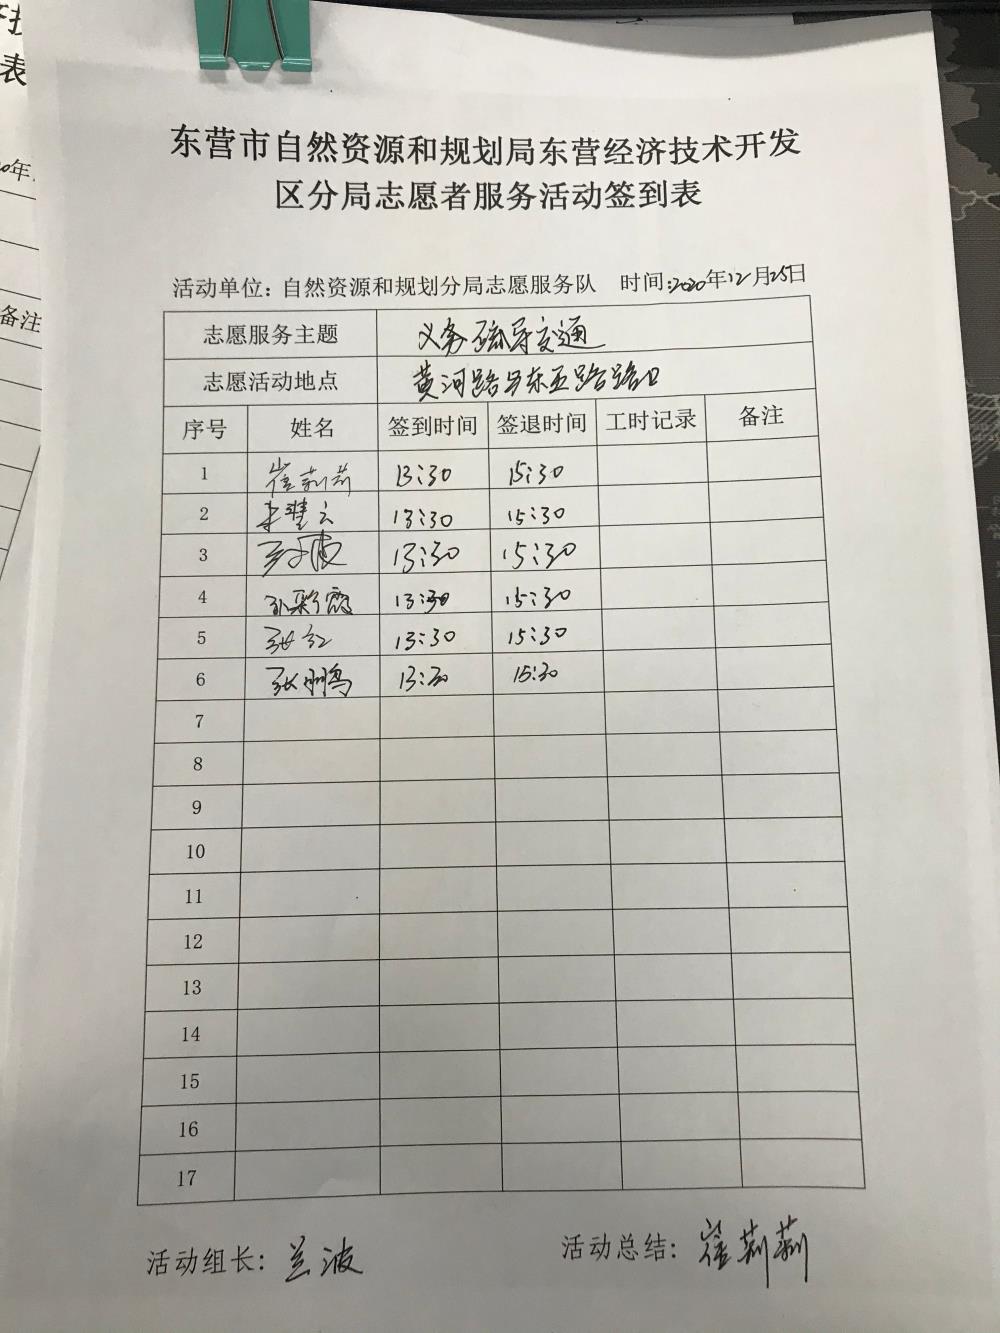 东营市自然资源和规划局东营经济技术开发
区分局志愿者服务活动签到表
活动单位：自然资源和规划分局志愿服务队 时间：2020年12月25日
志愿服务主题 义务疏导交通
志愿活动地点 黄河路与东五路路口
序号 姓名 签到时间 签退时间 工时记录 备注
1 崔莉莉 13:30 15:30
2 13:30 15:30
3 13:30 15:30
4 孙彩霞 13:30 15:30
5 张红 13:30 15:30
6 张鹏 13:30 15:30
7
8
9
10
11
12
13
14
15
16
17
活动组长：兰波 活动总结：崔莉莉
表
年
备注